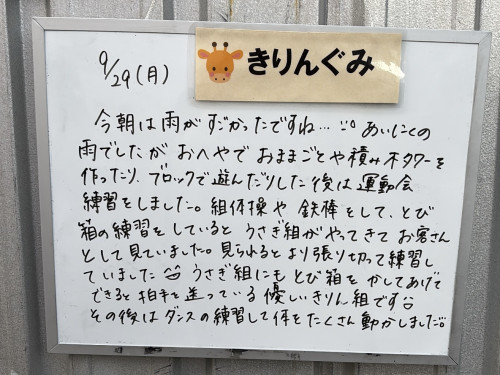 9/29(月)
きりんぐみ
今朝は雨がすごかったですね… あいにくの
雨でしたが おへやで おままごとや積み木タワーを
作ったり、ブロックで遊んだりした後は 運動会
練習をしました。組体操や 鉄棒をして、とび
箱の練習をしていると うさぎ組がやってきて お客さん
として見ていました。見られるとより張り切って練習し
ていました うさぎ組にも とび箱を かしてあげて
できると拍手を送っている優しいきりん組です
その後は ダンスの練習して体をたくさん動かしました。